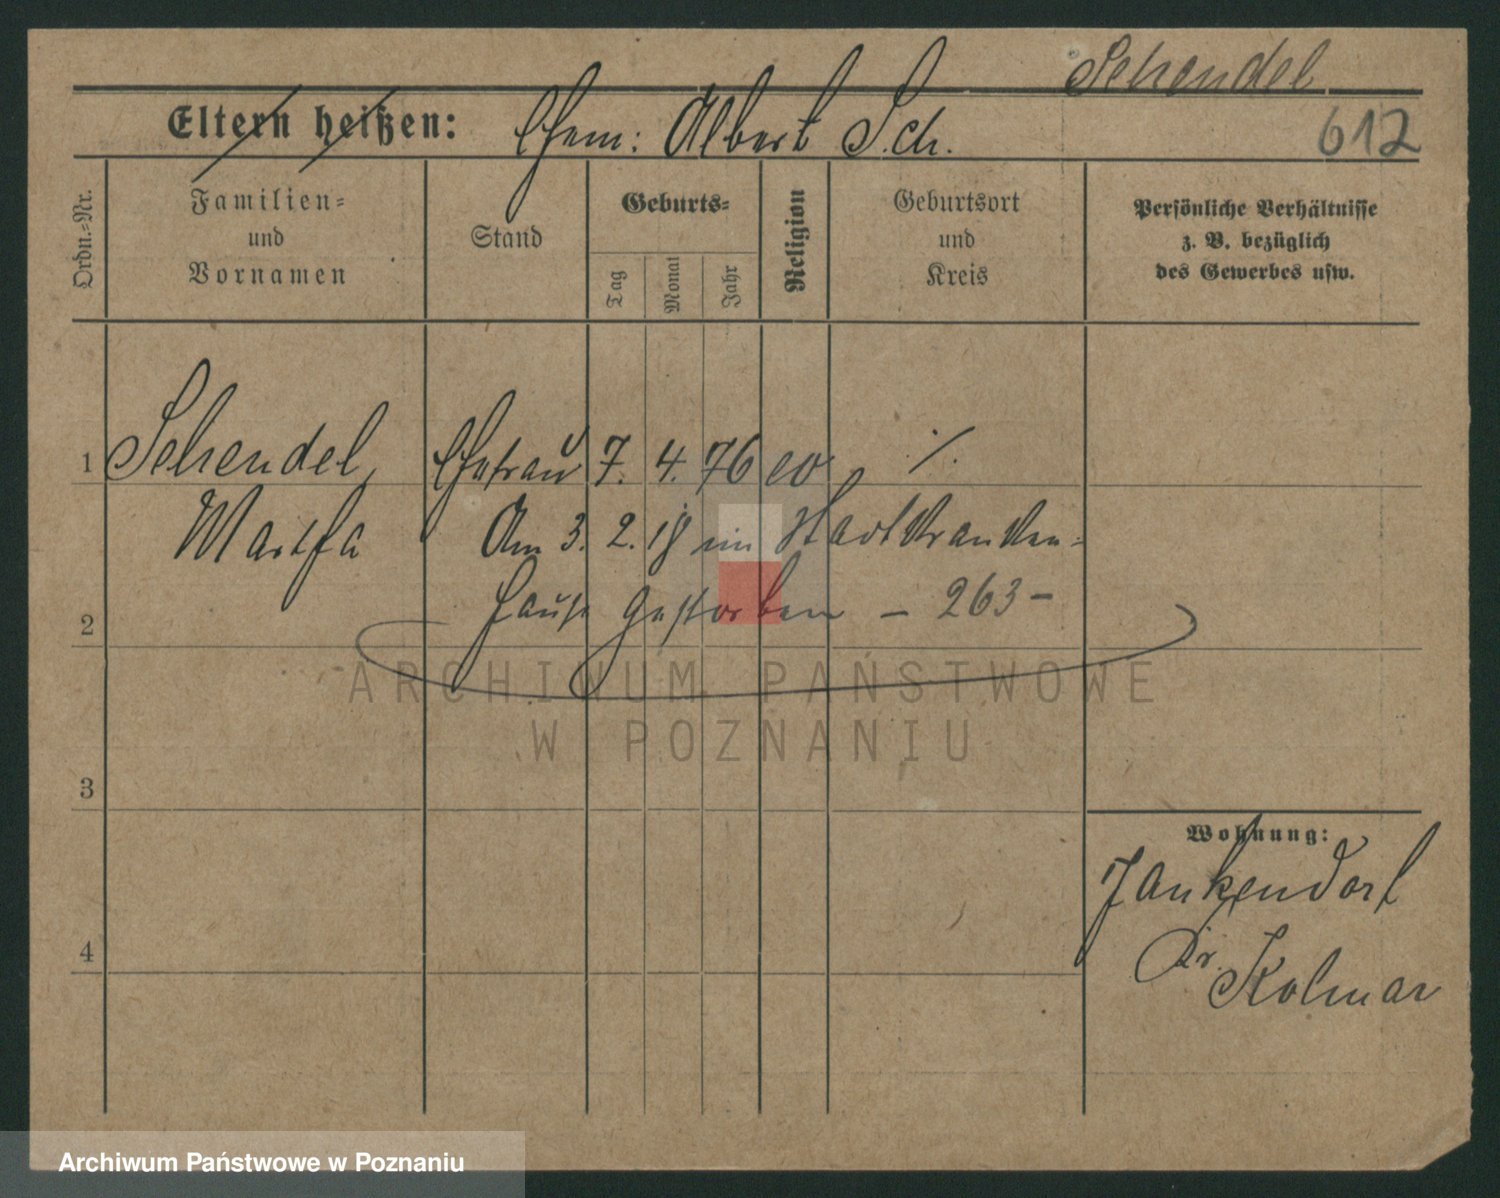 Schendel
612
Eltern heißen: Ehem: Albert Sch.
Ordn.-Nr.
Familien-
und
Vornamen
Stand
Geburts-
Tag
Monat
Jahr
Religion
Geburtsort
und
Kreis
Persönliche Verhältnisse
z. B. bezüglich
des Gewerbes usw.
1 Schendel, Ehefrau 7. 4. 76 ev ./.
Martha Am 3. 2. 18 im Stadtkranken-
hause gestorben – 263 –
2
ARCHIWUM PAŃSTWOWE
W POZNANIU
3
Wohnung:
Jankendorf
4
Kr. Kolmar
Archiwum Państwowe w Poznaniu